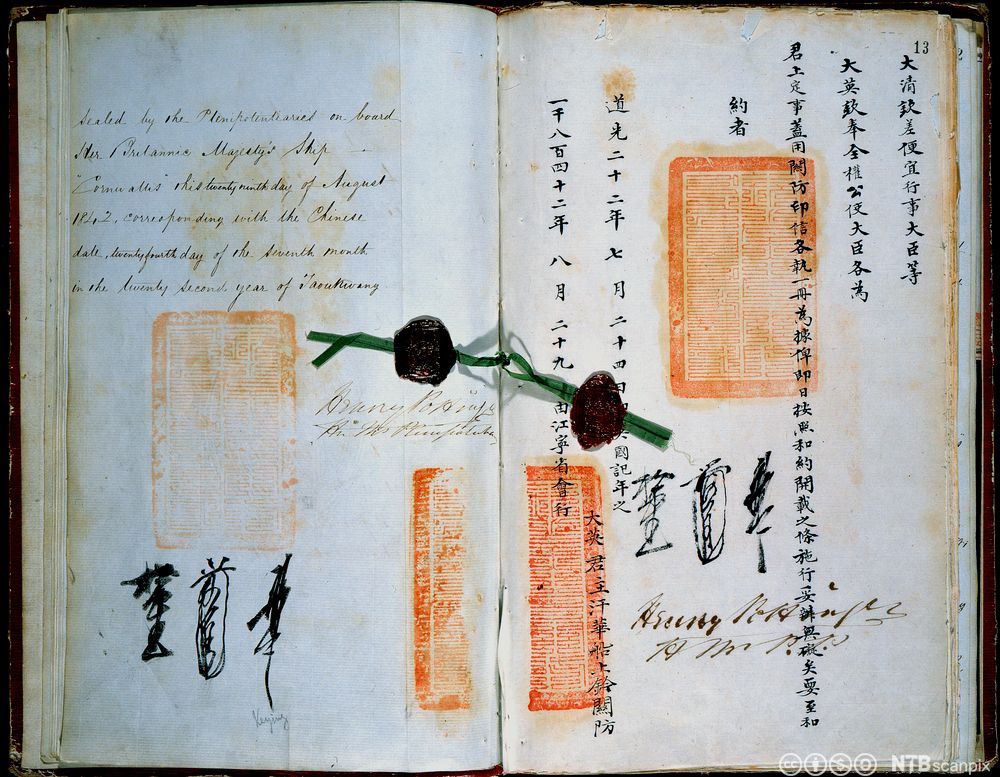 Sealed by the Plenipotentiaries on board
Her Britannic Majesty's Ship
"Cornwallis" this twenty ninth day of August
1842, corresponding with the Chinese
date, twenty fourth day of the seventh month
in the twenty second year of Taoukwang
Henry Pottinger
Keying
13
大清欽差便宜行事大臣等
大英欽奉全權公使大臣各為
君上定事蓋用關防印信各執一冊為據俾即日按照和約開載之條施行妥辦無礙矣要至和
約者
道光二十二年七月二十四日 英國記年之
一千八百四十二年八月二十九 由江寧省會行
大英君主汗華船上鈐關防
Henry Pottinger
NTB scanpix